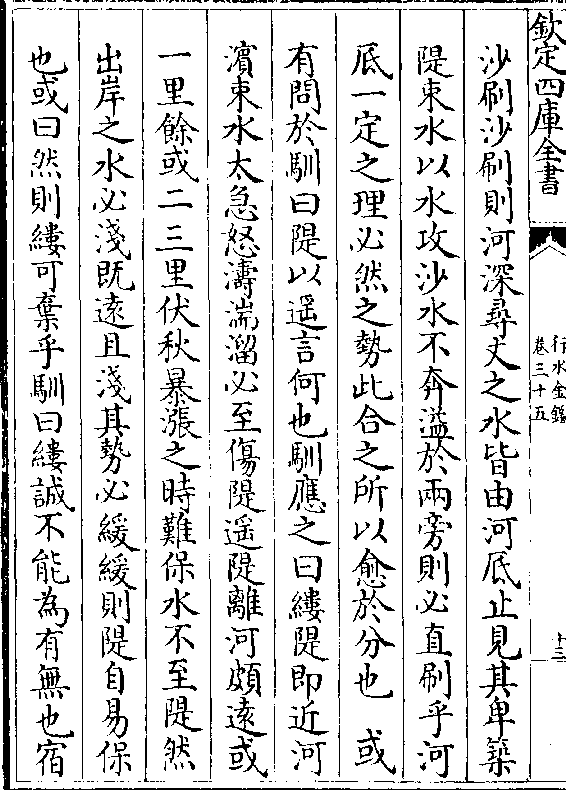 欽定四庫全書
行水金鑑
卷三十五
十三
沙刷沙刷則河深尋丈之水皆由河厎止見其卑築
隄束水以水攻沙水不奔溢於兩旁則必直刷乎河
厎一定之理必然之勢此合之所以愈於分也　或
有問於馴曰隄以遥言何也馴應之曰縷隄即近河
濵束水太急怒濤湍溜必至傷隄遥隄離河頗逺或
一里餘或二三里伏秋暴漲之時難保水不至隄然
出岸之水必淺既逺且淺其勢必緩緩則隄自易保
也或曰然則縷可棄乎馴曰縷誠不能為有無也宿